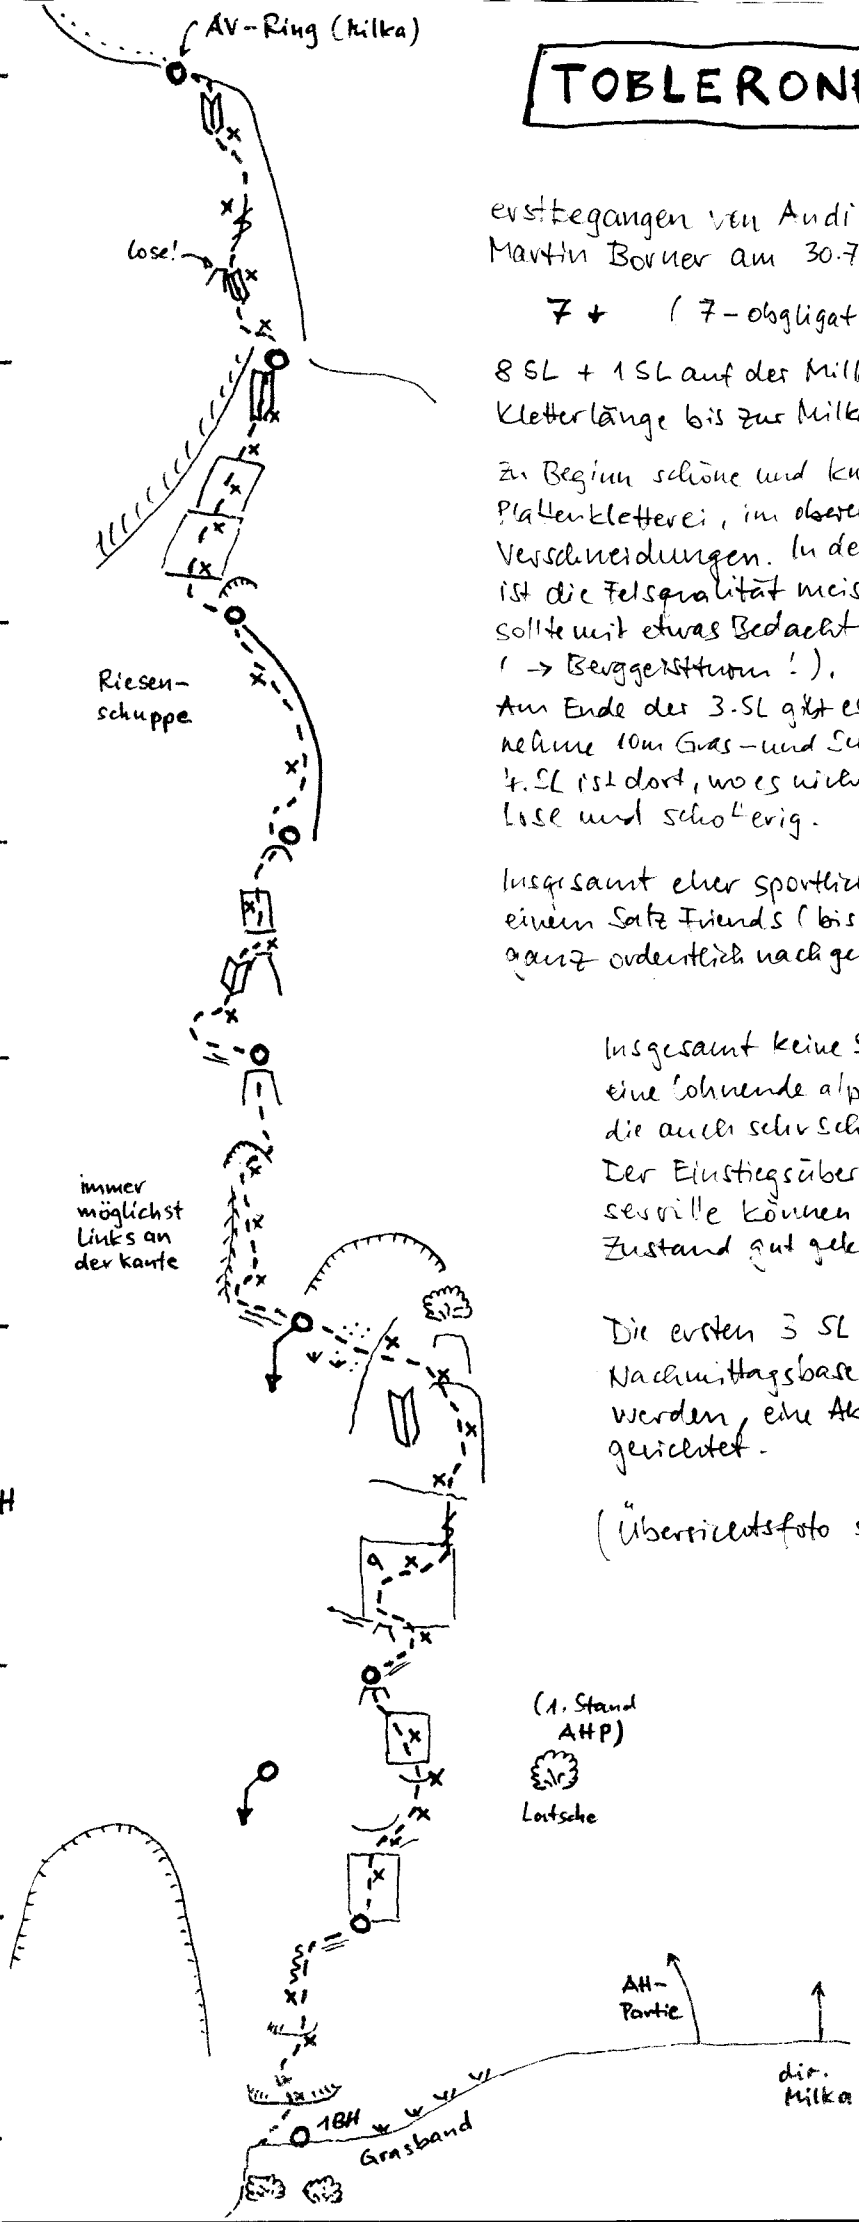 AV-Ring (Milka)
TOBLERON
erstbegangen von Andi
Martin Borner am 30.7
7+ (7- obgligat
lose!
8 SL + 1 SL auf der Mil
Kletterlänge bis zur Milk
Zu Beginn schöne und
Plattenkletterei, im obere
Verschneidungen. In de
ist die Felsqualität meis
sollte mit etwas Bedacht
(→ Berggeistturm!).
Riesen-
schuppe
Am Ende der 3. SL gibt es
nehme 10m Gras- und
4. SL ist dort, wo es nich
lose und schotterig.
Insgesamt eher sportlich
einem Satz Friends (bis
ganz ordentlich nach ge
Insgesamt keine S
eine lohnende alp
die auch sehr sch
Der Einstiegsüber
können
Zustand gut gek
immer
möglichst
Links an
der Kante
Die ersten 3 SL
Nachmittags
werden, eine Ak
gerichtet.
H
(Übersichtsfoto s
(1. Stand
AHP)
Latsche
AH-
Partie
dir.
Milka
1BH
Grasband